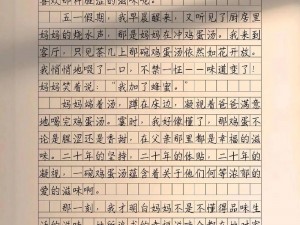 喜欢那种甜蜜的滋味呢。
五一假期，我早晨醒来，又听见了厨房里
妈妈的烧水声，那是妈妈在冲鸡蛋汤。我来到
客厅，只见茶几上那碗鸡蛋汤依然如花开放。
我悄悄地啜了一口，不禁一怔——味道变了！
妈妈笑着说：“我加了蜂蜜。”
妈妈端着汤，蹲在床边，凝视着爸爸满意
地喝完鸡蛋汤。霎时，我好像懂了，那鸡蛋不
论是腥涩还是香甜，在父亲那里都是幸福的滋
味。二十年的坚持，二十年的体贴，二十年的
凝视，一碗鸡蛋汤蕴含着关于他们何等浓郁的
爱的滋味啊。
那一刻，我才明白妈妈不是不懂得品味生